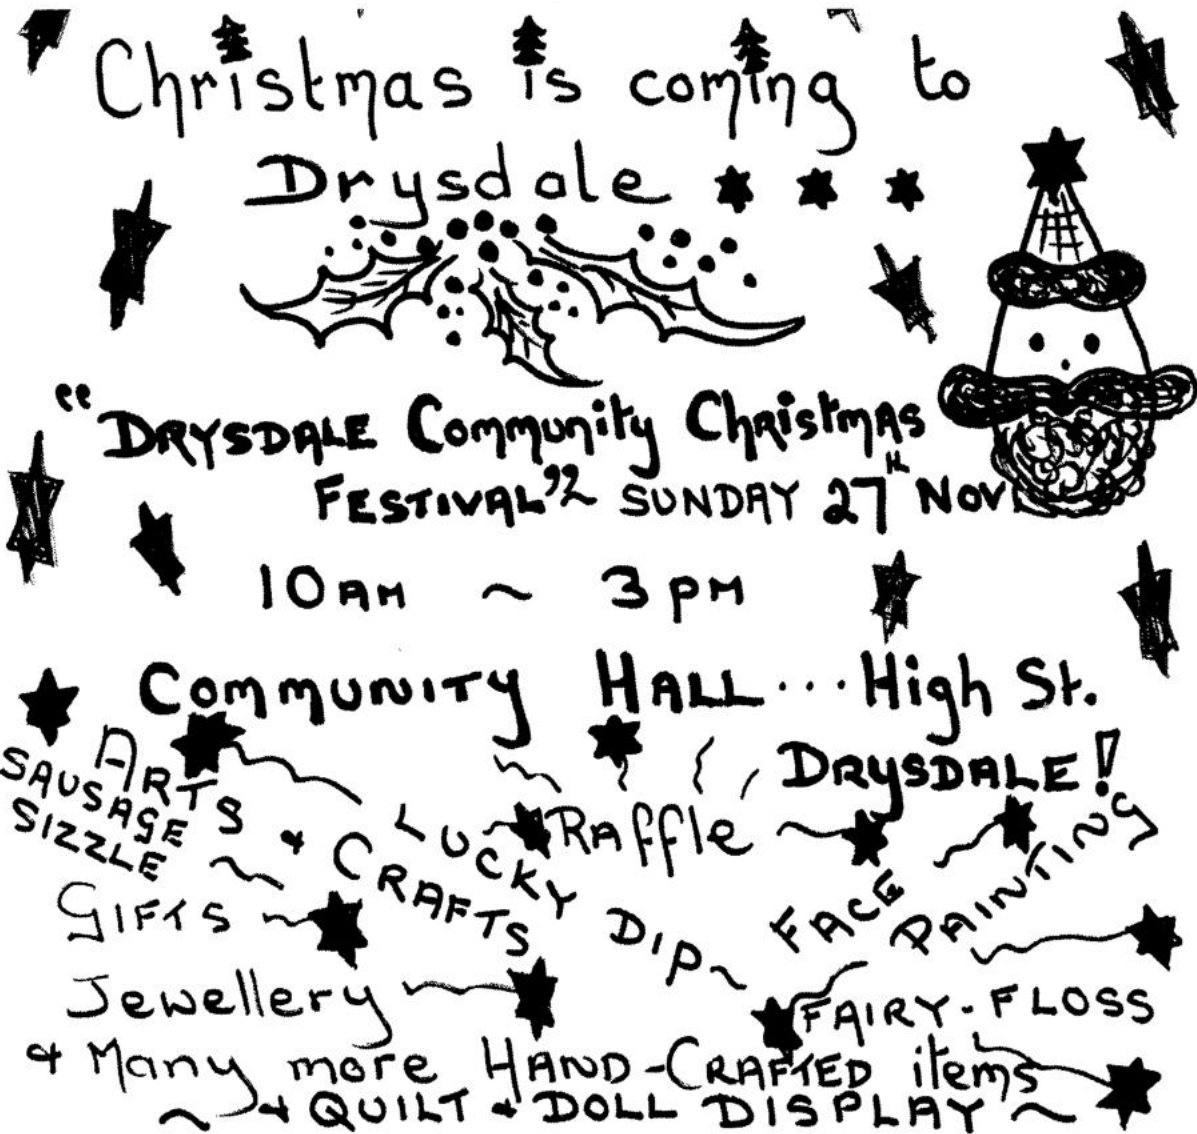 Christmas is coming to
Drysdale
"DRYSDALE Community Christmas
FESTIVAL" SUNDAY 27th NOV.
10AM ~ 3PM
COMMUNITY HALL...High St.
DRYSDALE!
ARTS & CRAFTS
SAUSAGE
SIZZLE
LUCKY DIP
RAffle
FACE PAINTING
GIFTS
Jewellery
FAIRY-FLOSS
& Many more HAND-CRAFTED items
~ & QUILT & DOLL DISPLAY ~